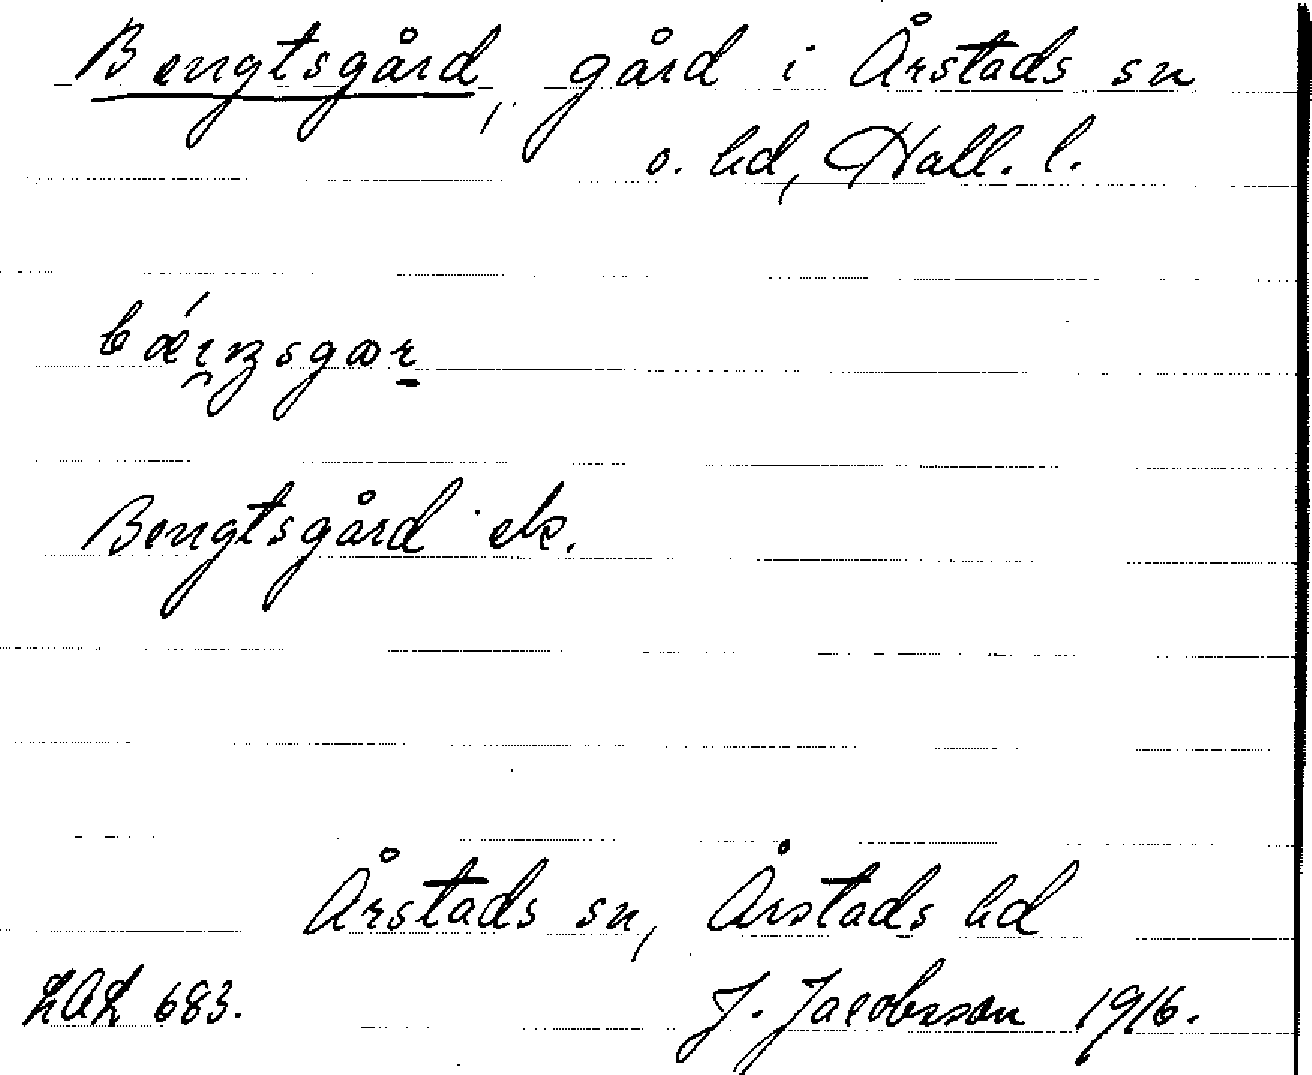 Bengtsgård, gård i Årstads sn
o. hd, Hall. l.
Bengtsgård ek.
Årstads sn, Årstads hd
LAL 683.
J. Jacobsson 1916.